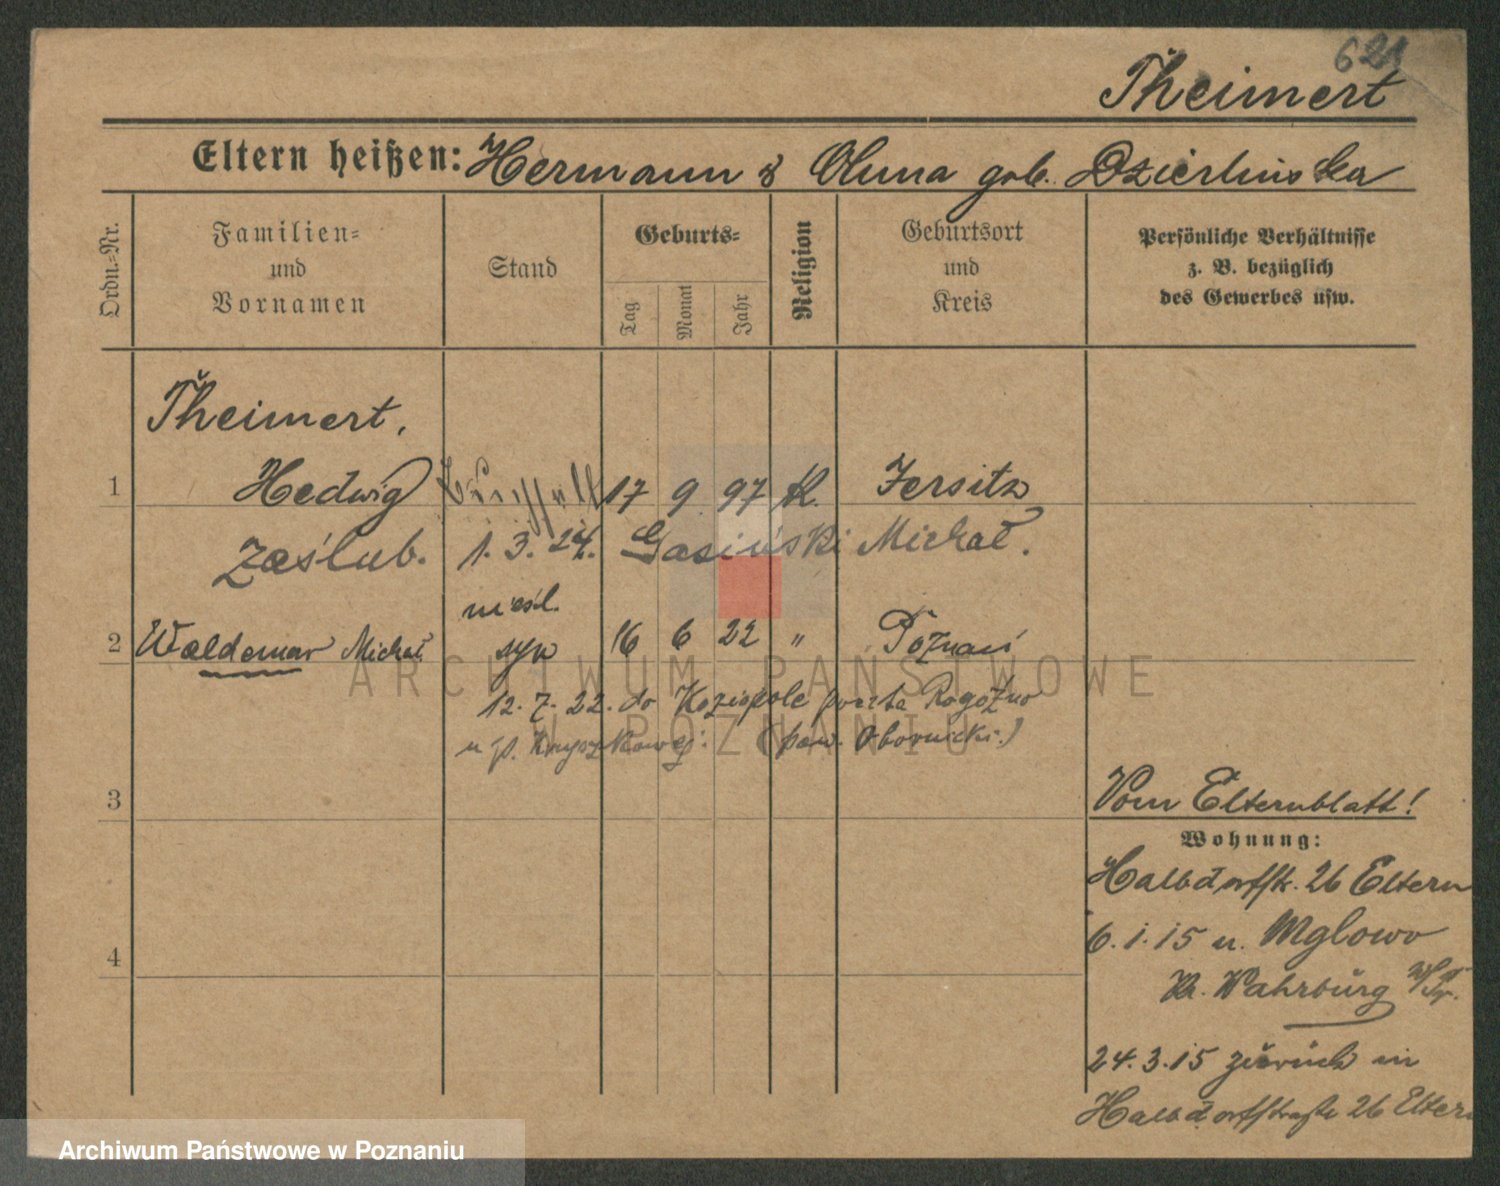 621
Theimert
Eltern heißen: Hermann & Anna geb. Dzierlinska
Ordn.-Nr.
Familien-
und
Vornamen
Stand
Geburts-
Tag
Monat
Jahr
Religion
Geburtsort
und
Kreis
Persönliche Verhältnisse
z. B. bezüglich
des Gewerbes usw.
Theimert,
1 Hedwig 17 9 97 K. Jersitz
zaślub. 1. 3. 24. Gasiński Michał.
nieśl.
2 Waldemar Michał syn 16 6 22 " Poznań
12. 7. 22. do Koziepole poczta Rogoźno
u p. (pow. Obornicki.)
3
4
Vom Elternblatt!
Wohnung:
Halbdorfstr. 26 Eltern
6. 1. 15 n. Mglowo
Kr. Wahrburg
24. 3. 15 zurück in
Halbdorfstraße 26 Eltern
ARCHIWUM PAŃSTWOWE
W POZNANIU
Archiwum Państwowe w Poznaniu